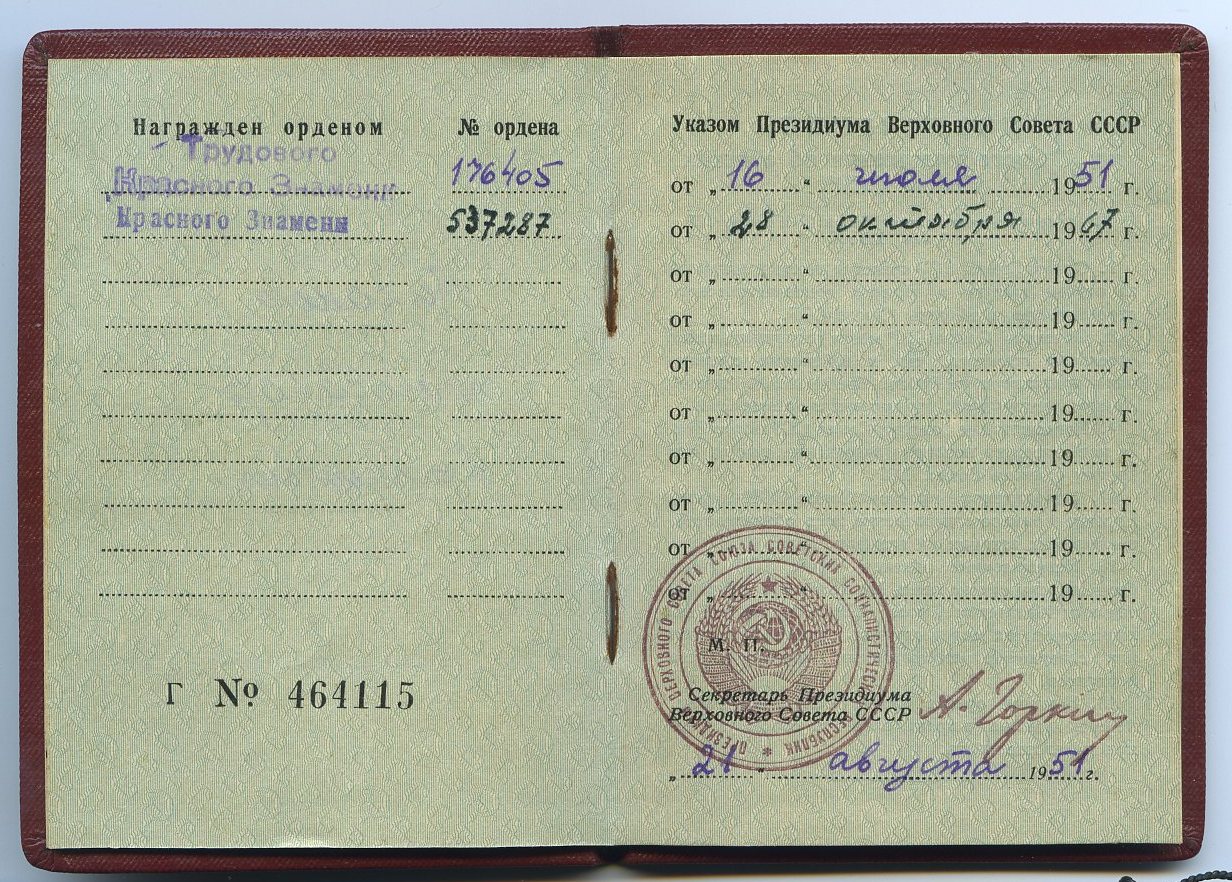 Награжден орденом
№ ордена
Трудового
Красного Знамени
176405
Красного Знамени
537287
Г № 464115
Указом Президиума Верховного Совета СССР
от „ 16 “ июля 1951 г.
от „ 28 “ октября 1967 г.
от „ “ 19 г.
от „ “ 19 г.
от „ “ 19 г.
от „ “ 19 г.
от „ “ 19 г.
от „ “ 19 г.
от „ “ 19 г.
от „ “ 19 г.
ПРЕЗИДИУМ ВЕРХОВНОГО СОВЕТА СОЮЗА СОВЕТСКИХ СОЦИАЛИСТИЧЕСКИХ РЕСПУБЛИК
М. П.
Секретарь Президиума
Верховного Совета СССР
А. Горкин
„ 21 “ августа 1951 г.